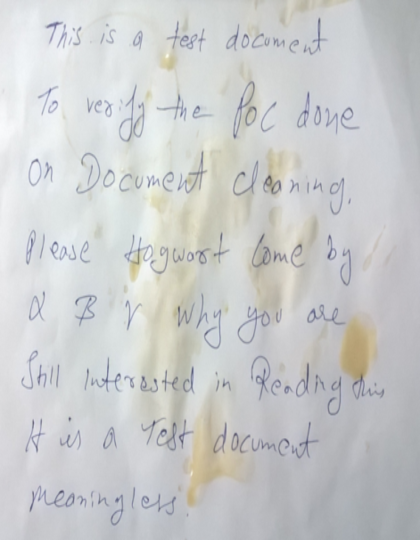 This is a test document
To verify the POC done
On Document cleaning.
Please Hogwart Come by
α B γ Why you are
Still Interested in Reading this
It is a Test document
Meaningless.